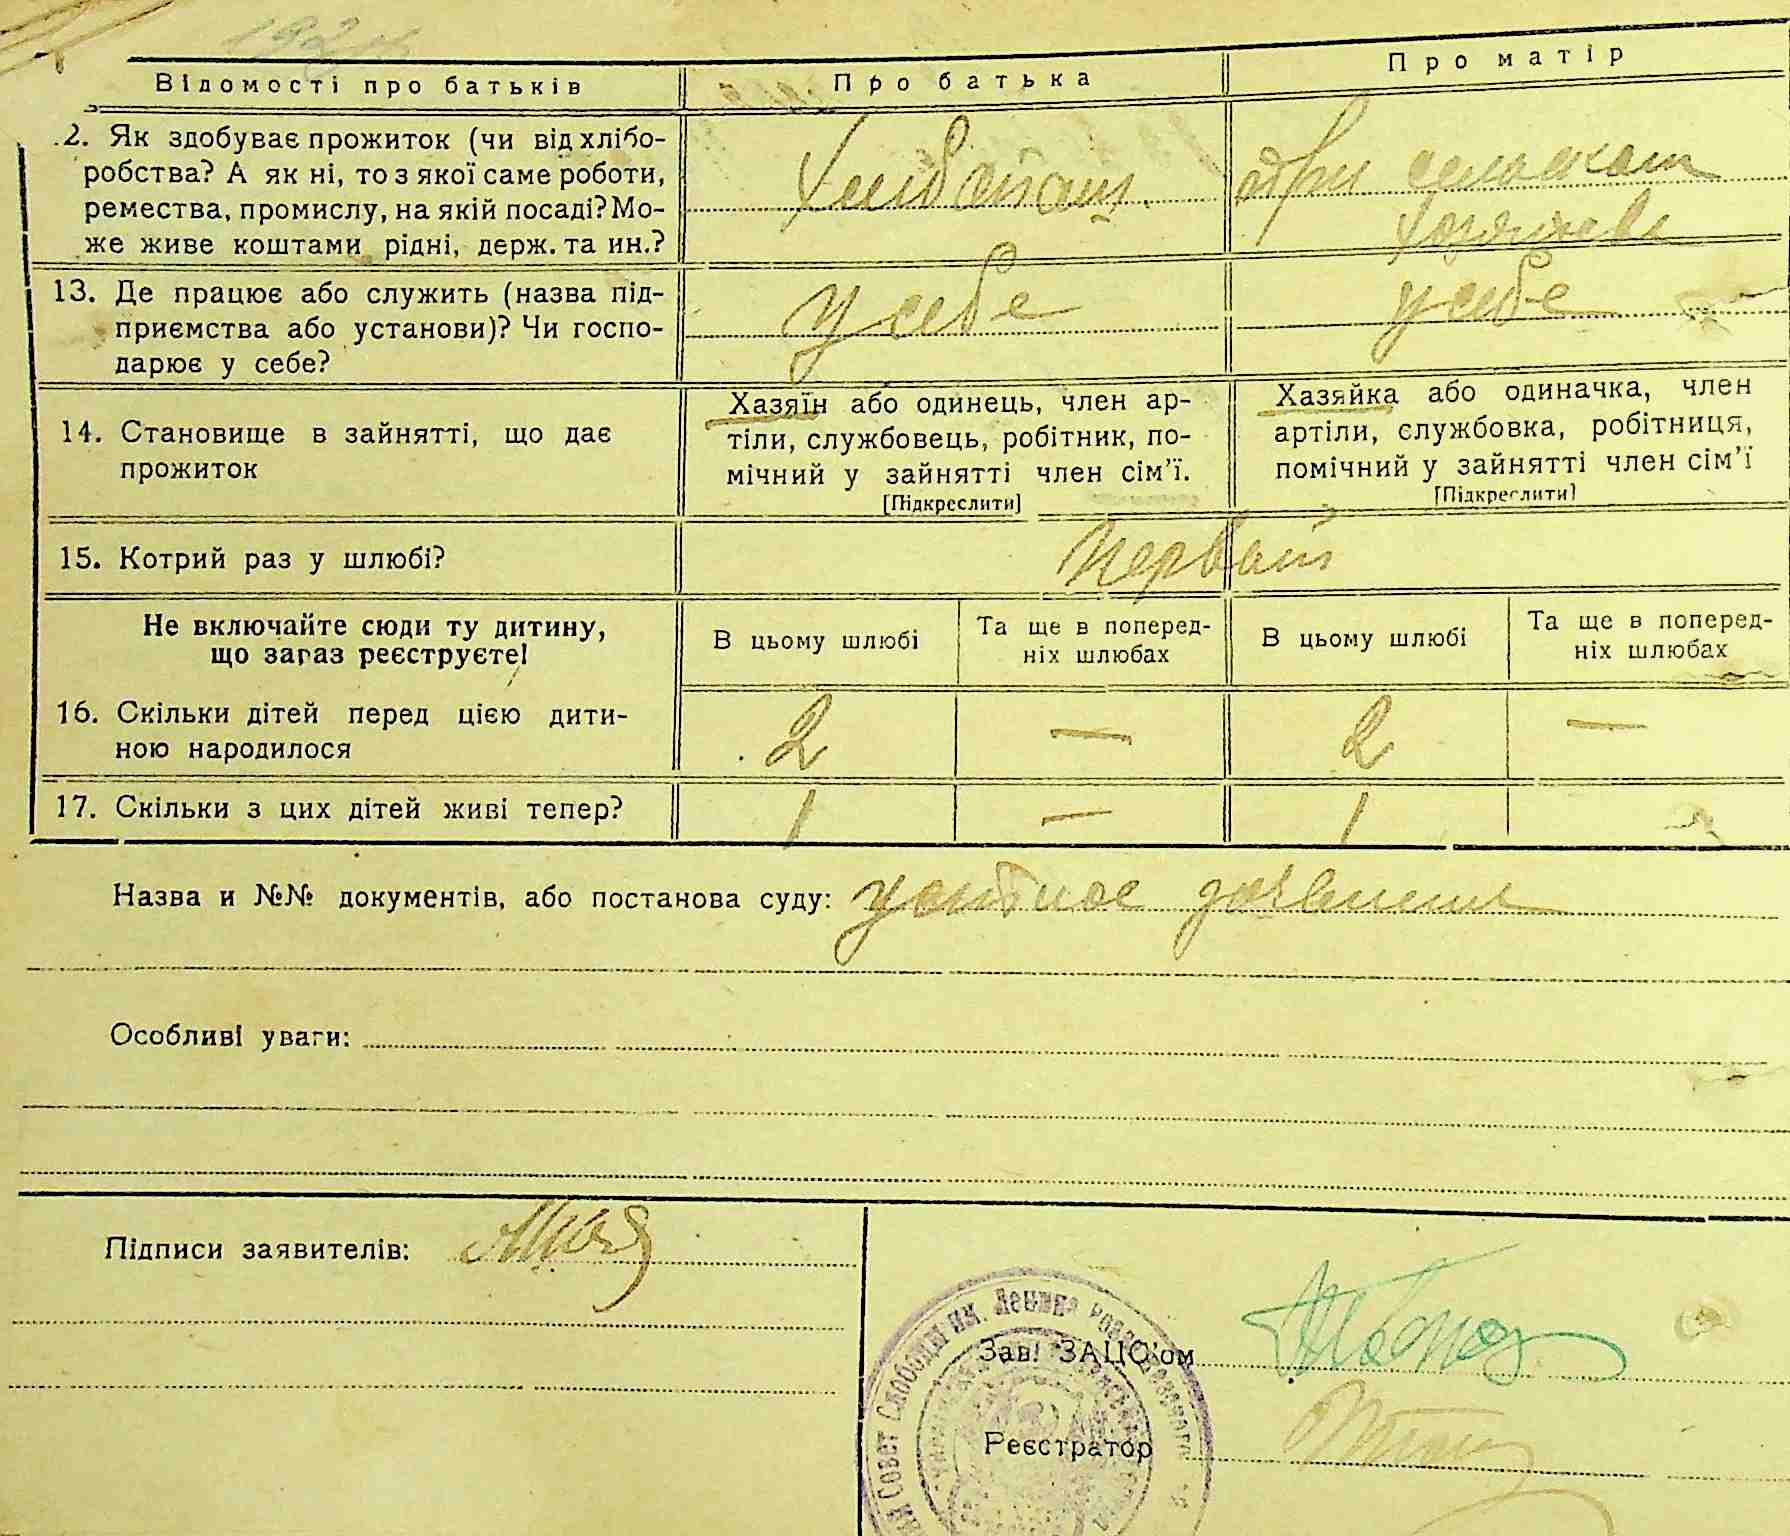 Відомості про батьків
Про батька
Про матір
2. Як здобуває прожиток (чи від хлібо-
робства? А як ні, то з якої саме роботи,
ремества, промислу, на якій посаді? Мо-
же живе коштами рідні, держ. та ин.?
при сельском
13. Де працює або служить (назва під-
приємства або установи)? Чи госпо-
дарює у себе?
у себе
у себе
14. Становище в зайнятті, що дає
прожиток
Хазяїн або одинець, член ар-
тіли, службовець, робітник, по-
мічний у зайнятті член сім'ї.
[Підкреслити]
Хазяйка або одиначка, член
артіли, службовка, робітниця,
помічний у зайнятті член сім'ї
[Підкреслити]
15. Котрий раз у шлюбі?
Первый
Не включайте сюди ту дитину,
що зараз реєструєте!
В цьому шлюбі
Та ще в поперед-
ніх шлюбах
В цьому шлюбі
Та ще в поперед-
ніх шлюбах
16. Скільки дітей перед цією дити-
ною народилося
2
—
2
—
17. Скільки з цих дітей живі тепер?
1
—
1
Назва и №№ документів, або постанова суду: устное
Особливі уваги:
Підписи заявителів:
Зав. ЗАЦС'ом
Реєстратор
Совет Свободы им. Ленина